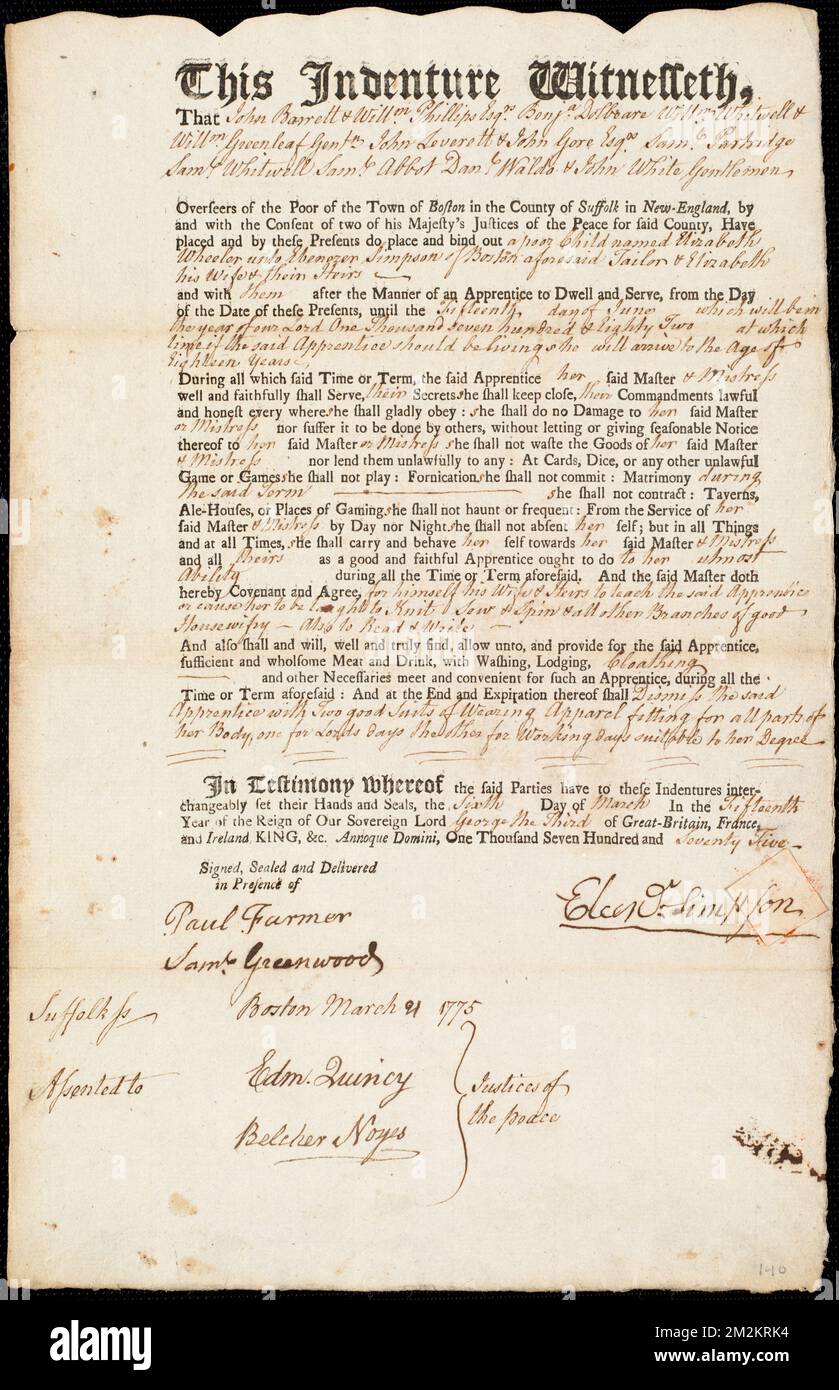 This Indenture Witnesseth,
That John Barrett & Willm Phillips Esqrs Benja Dolbeare Willm Whitwell &
Willm Greenleaf Gentn John Leverett & John Gore Esqrs Saml Partridge
Saml Whitwell Saml Abbot Danl Waldo & John White Gentlemen
Overseers of the Poor of the Town of Boston in the County of Suffolk in New-England, by
and with the Consent of two of his Majesty's Justices of the Peace for said County, Have
placed and by these Presents do place and bind out a poor Child named Elizabeth
Wheeler unto Ebenezer Simpson of Boston aforesaid Tailor & Elizabeth
his Wife & their Heirs
and with them after the Manner of an Apprentice to Dwell and Serve, from the Day
of the Date of these Presents, until the Fifteenth day of June which will be in
the year of our Lord One Thousand seven hundred & Eighty Two at which
time if the said Apprentice should be living she will arrive to the Age of
Eighteen Years
During all which said Time or Term, the said Apprentice her said Master & Mistress
well and faithfully shall Serve, their Secrets she shall keep close, their Commandments lawful
and honest every where she shall gladly obey : she shall do no Damage to her said Master
or Mistress nor suffer it to be done by others, without letting or giving seasonable Notice
thereof to her said Master or Mistress she shall not waste the Goods of her said Master
& Mistress nor lend them unlawfully to any : At Cards, Dice, or any other unlawful
Game or Games she shall not play : Fornication she shall not commit : Matrimony during
the said Term she shall not contract : Taverns,
Ale-Houses, or Places of Gaming she shall not haunt or frequent : From the Service of her
said Master & Mistress by Day nor Night she shall not absent her self; but in all Things
and at all Times, she shall carry and behave her self towards her said Master & Mistress
and all theirs as a good and faithful Apprentice ought to do to her utmost
Ability during all the Time or Term aforesaid. And the said Master doth
hereby Covenant and Agree, for himself his Wife & Heirs to teach the said Apprentice
or cause her to be taught to Knit Sew & Spin & all other Branches of good
Housewifry – Also to Read & Write –
And also shall and will, well and truly find, allow unto, and provide for the said Apprentice,
sufficient and wholsome Meat and Drink, with Washing, Lodging, Cloathing
and other Necessaries meet and convenient for such an Apprentice, during all the
Time or Term aforesaid : And at the End and Expiration thereof shall Dismiss the said
Apprentice with Two good Suits of Wearing Apparel fitting for all parts of
her Body, one for Lords days the other for Working days suitable to her Degree
In Testimony whereof the said Parties have to these Indentures inter-
changeably set their Hands and Seals, the Sixth Day of March In the Fifteenth
Year of the Reign of Our Sovereign Lord George the Third of Great-Britain, France,
and Ireland, KING, &c. Annoque Domini, One Thousand Seven Hundred and Seventy Five –
Signed, Sealed and Delivered
in Presence of
Paul Farmer
Saml Greenwood
Simpson
Suffolk ss Boston March 21 1775
Assented to Edm. Quincy
Belcher Noyes
Justices of
the peace
140
alamy
Image ID: 2M2KRK4
www.alamy.com